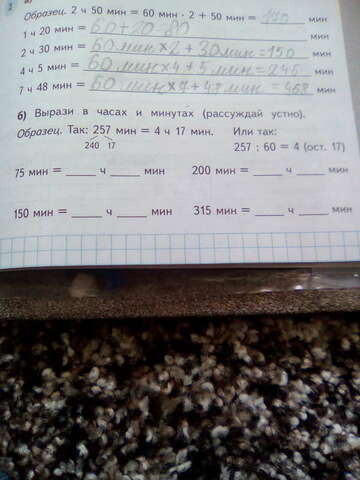 Образец. 2 ч 50 мин = 60 мин · 2 + 50 мин = 170 мин
1 ч 20 мин = 60+20=80 мин
2 ч 30 мин = 60 мин×2 + 30 мин = 150 мин
4 ч 5 мин = 60 мин×4 + 5 мин = 245 мин
7 ч 48 мин = 60 мин×7 + 48 мин = 468 мин
б) Вырази в часах и минутах (рассуждай устно).
Образец. Так: 257 мин = 4 ч 17 мин. Или так:
240 17 257 : 60 = 4 (ост. 17)
75 мин = ____ ч ____ мин 200 мин = ____ ч ____ мин
150 мин = ____ ч ____ мин 315 мин = ____ ч ____ мин